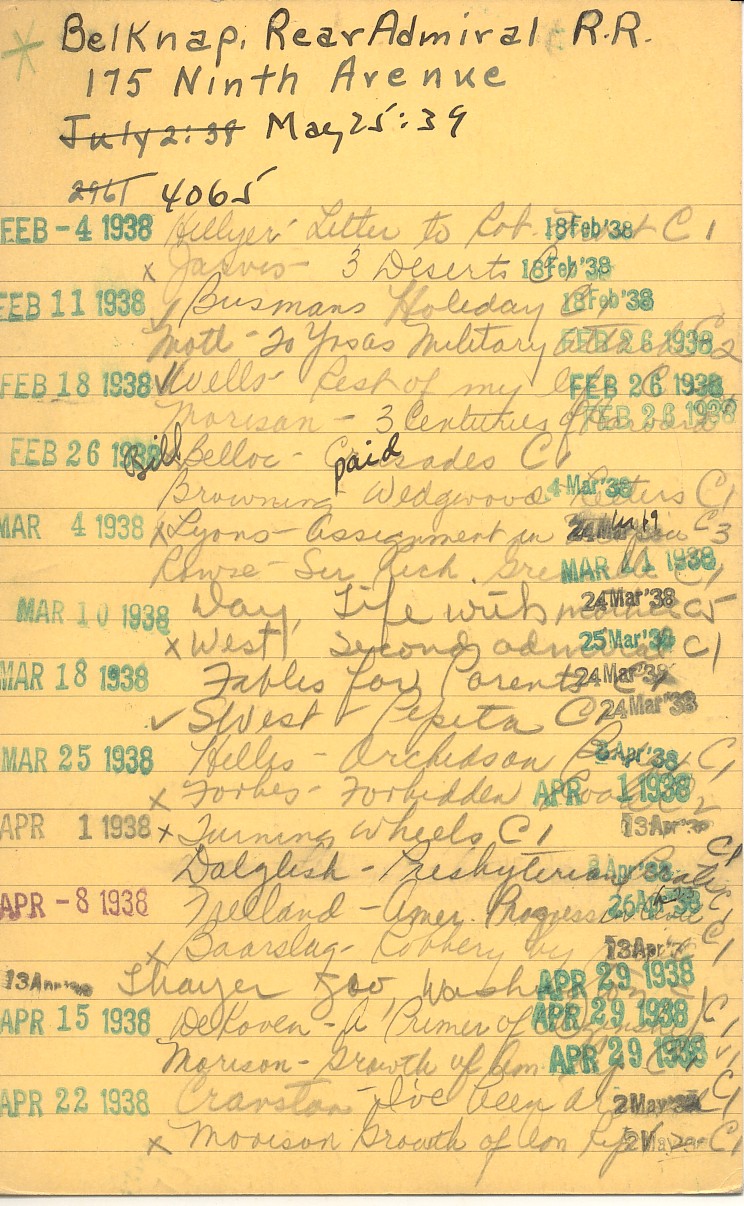 BelKnap, Rear Admiral R.R.
175 Ninth Avenue
July 2:38 May 25:39
2961 4065
FEB - 4 1938 Hillyer Letter to Rob. C 1 18 Feb '38
x Jarvis - 3 Deserts C 1 18 Feb '38
FEB 11 1938 Busmans Holiday C 1 18 Feb '38
Mott - 20 Yrs as Military C 2 FEB 26 1938
FEB 18 1938 ✓ Wells - Rest of my life C FEB 26 1938
Morison - 3 Centuries of Harvard FEB 26 1938
FEB 26 1938 Bill Belloc - Crusades C 1 paid
Browning Wedgwood Letters C 1 4 Mar '38
MAR 4 1938 x Lyons - Assignment in C 3 24 Mar
Rowse - Sir Rich. Grenville C 1 MAR 11 1938
MAR 10 1938 Day, Life with mother C 5 24 Mar '38
x West, Second admiral C 1 25 Mar '38
MAR 18 1938 Fables for Parents C 1 24 Mar '38
✓ S West - Pepita C 24 Mar '38
MAR 25 1938 - C 1 Apr '38
x Forbes - Forbidden Road C 2 APR 1 1938
APR 1 1938 x Turning Wheels C 1 13 Apr
Dalglish - Presbyterian C 1 Apr '38
APR - 8 1938 - Amer. Progress 26 Apr '38
x Baarslag - Robbery by C 1 13 Apr
13 Apr Thayer Geo Washington APR 29 1938
APR 15 1938 De Koven - A Primer of C 1 APR 29 1938
Morison - Growth of Am. C V 1 APR 29 1938
APR 22 1938 Cranston - I've been C 1 2 May '38
x Morison Growth of Am Rep V. 2 C 1 2 May